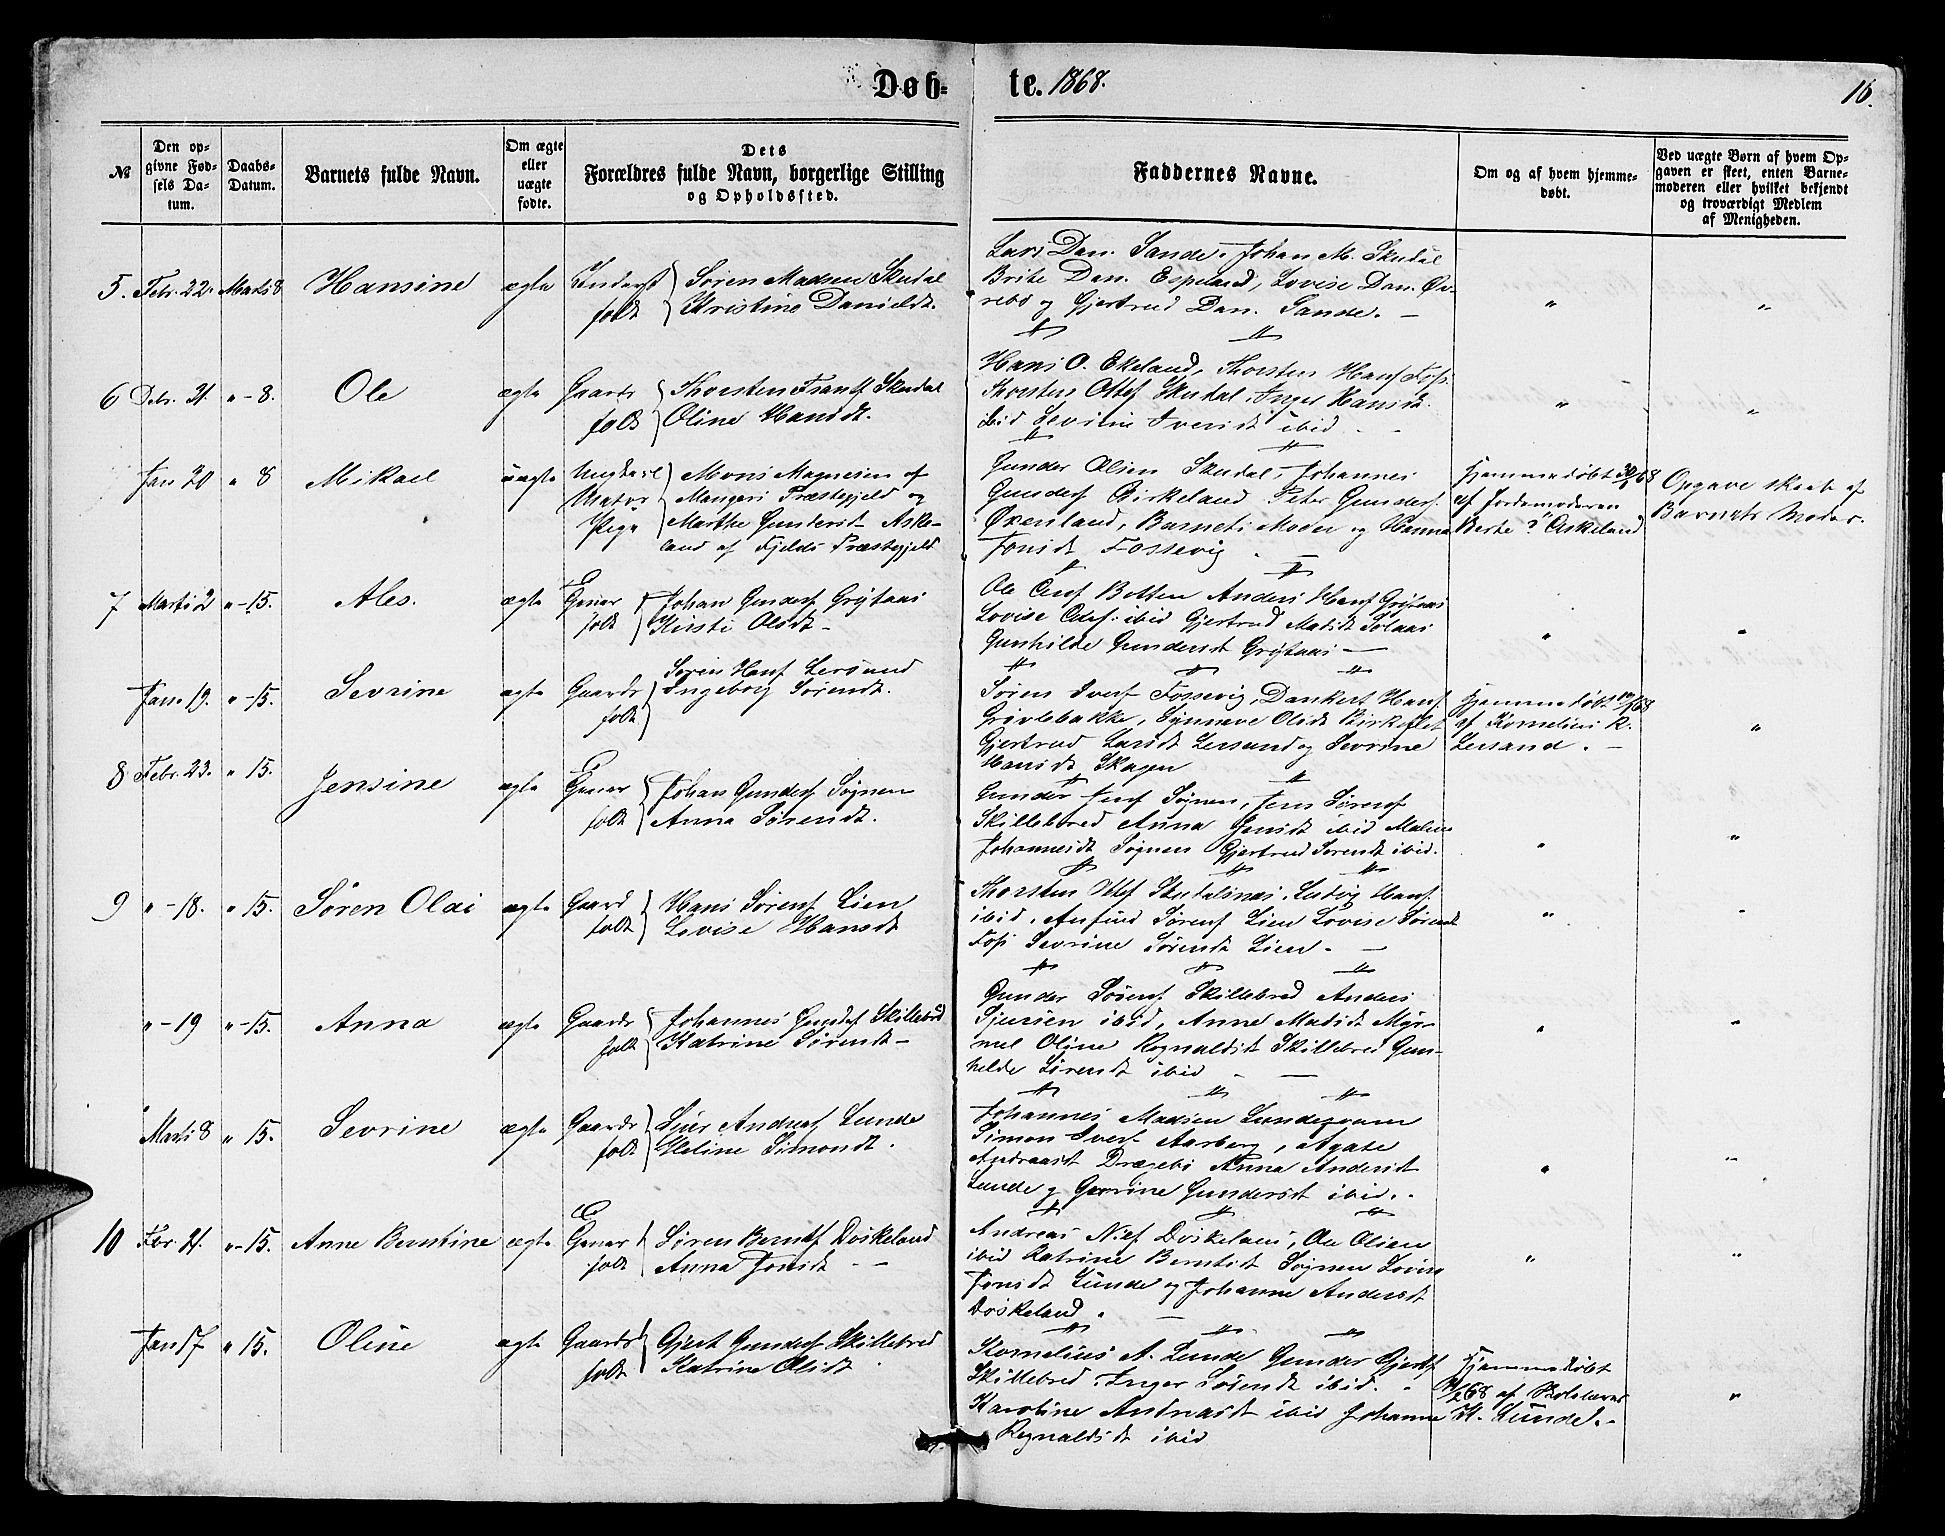 Døb-
te. 1868.
16.
№
Den op-
givne Fød-
sels Da-
tum.
Daabs-
Datum.
Barnets fulde Navn.
Om ægte
eller
uægte
fødte.
Dets
Forældres fulde Navn, borgerlige Stilling
og Opholdssted.
Faddernes Navne.
Om og af hvem hjemme-
døbt.
Ved uægte Børn af hvem Op-
gaven er skeet, enten Barne-
moderen eller hvilket bekjendt
og troværdigt Medlem
af Menigheden.
5. Febr. 22. Marts 8 Hansine ægte Inderst
folk
Søren Madsen Skudal
Kristine Danieldt.
Lars Dan. Sande. Johan M. Skudal
Brite Dan. Espeland, Lovise Dan. Øv-
rebø og Gjertrud Dan. Sande. —
6 Debr. 31. " - 8. Ole ægte Gaards
folk
Thorsten Skudal
Oline Hansdt.
Hans O. Ekeland, Thorsten Hansf Foss.
Thorsten Olsf Skudal, Inger Hansdt.
ibid Sevrine Iversdt ibid
Jan 20 " 8 Mikael uægte Ungkarl
Pige
Mons Magnesen af
Mangers Præstegjeld og
Marthe Gundersdt Aske-
land af Fjelds Præstegjeld
Gunder Olsen Skudal, Johannes
Gundersf Birkeland Peter Gundersf.
Øxenland, Barnets Moder og Hanna
Jonsdt Fossevig
Hjemmedøbt
af Jordemoderen
Berte Askeland
Opgave skeet af
Barnets Moder.
7 Marts 2 " - 15. Ales. ægte Gaard
folk
Johan Gundersf Grytaas
Kirsti Olsdt —
Ole Botten Anders Hansf Grytaas
Lovise ibid Gjertrud Matsdt Solaas
Gunhilde Gundersdt Grytaas —
Jan. 19. " - 15. Sevrine ægte Gaards
folk
Søren Hansf Lersund
Ingeborg Sørendt.
Søren Iversf Fossevig, Dankert Hansf
Grøvlebakke, Synneve Olsdt Birkeflet
Gjertrud Larsdt Lersund og Sevrine
Hansdt Skagen
Hjemmedøbt
af Kornelius R.
Lersund. —
8 Febr. 23. " 15. Jensine ægte
folk
Johan Gundersf Søgnen
Anna Sørendt.
Gunder Jensf Søgnen, Jens Sørensf
Skillebred Anna Jensdt ibid Malene
Johannesdt Søgnen Gjertrud Sørendt ibid.
9 " - 18. " 15. Søren Olai ægte Gaard
folk
Hans Sørensf Lien
Lovise Hansdt
Thorsten Olsf Skudalsnes, Ludvig Hansf.
ibid. Anfind Sørensf Lien Lovise Sørendt
Foss Sevrine Sørendt Lien. —
" - 19 " - 15. Anna ægte Gaards
folk
Johannes Gundersf Skillebred
Katrine Sørendt —
Gunder Sørensf Skillebred Anders
Sjursen ibid, Anne Matsdt Myr-
mel Oline Rognaldsdt Skillebred Gun-
helde Sørendt ibid — —
Marts 8 " 15. Sevrine ægte Gaards
folk
Sjur Andreasf Lunde
Heline Simondt.
Johannes Madsen Lundegaarn
Simon Iversf Aarberg, Agate
Andreasdt Dragebø Anna Andersdt
Lunde og Gurine Gundersdt ibid. .
10 Febr. 21. " - 15. Anne Berntine ægte
folk
Søren Berntsf Døskeland
Anna Jonsdt — —
Andreas Døskeland, Ole Olsen
ibid Katrine Berntsdt Søgnen Lovise
Jonsdt Lunde og Johanne Andersdt
Døskeland.
Jan 17 " 15. Oline ægte Gaards
folk
Gjert Gundersf Skillebred
Katrine Olsdt
Kornelius A. Lunde Gunder Gjertsf
Skillebred. Inger Sørendt ibid.
Karoline Andreasdt ibid Johanne
Rognaldsdt ibid
Hjemmedøbt
af Skolelærer
H. Lunde. —